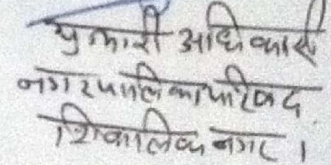 प्रभारी अधिकारी
नगरपालिका परिषद
शिवालिक नगर ।